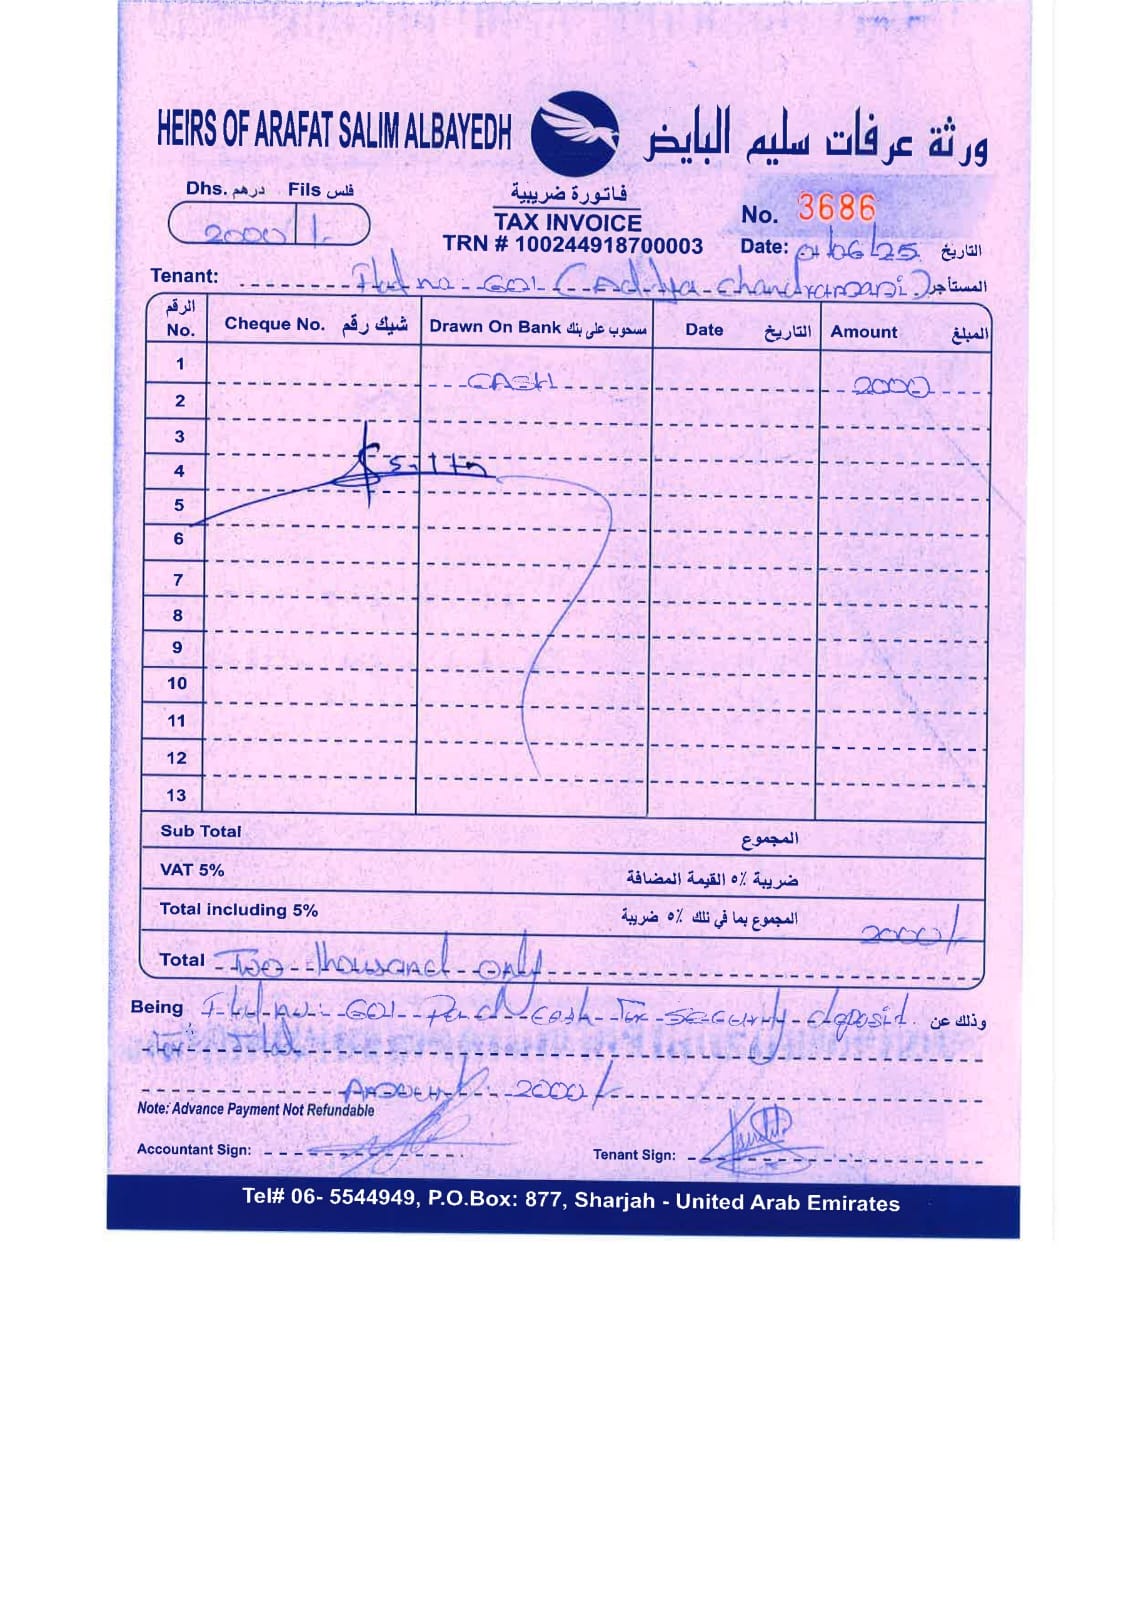 HEIRS OF ARAFAT SALIM ALBAYEDH ورثة عرفات سليم البايض
Dhs. درهم Fils فلس
2000 /-
فاتورة ضريبية
TAX INVOICE
TRN # 100244918700003
No. 3686
Date: 01/06/25 التاريخ
Tenant: Flat no - 601 (Aditya chandravansi) المستأجر
الرقم No. Cheque No. شيك رقم Drawn On Bank مسحوب على بنك Date التاريخ Amount المبلغ
1 CASH 2000
2
3
4
5
6
7
8
9
10
11
12
13
Sub Total المجموع
VAT 5% ضريبة ٥٪ القيمة المضافة
Total including 5% المجموع بما في ذلك ٥٪ ضريبة 2000/-
Total Two thousand only
Being Flat no: 601 cash For Security deposit وذلك عن
Amount: 2000/-
Note: Advance Payment Not Refundable
Accountant Sign: Tenant Sign:
Tel# 06- 5544949, P.O.Box: 877, Sharjah - United Arab Emirates